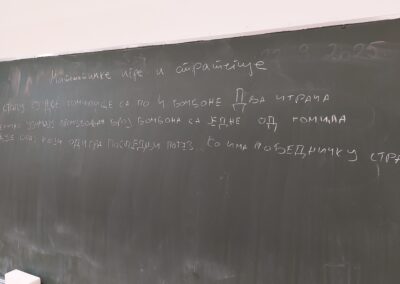 2025
Математичке игре и стратегије
столу су две гомилице са по 4 бомбоне Два играча
узимају произвољан број бомбона са једне од гомила
онај који одигра последњи потез Ко има победничку